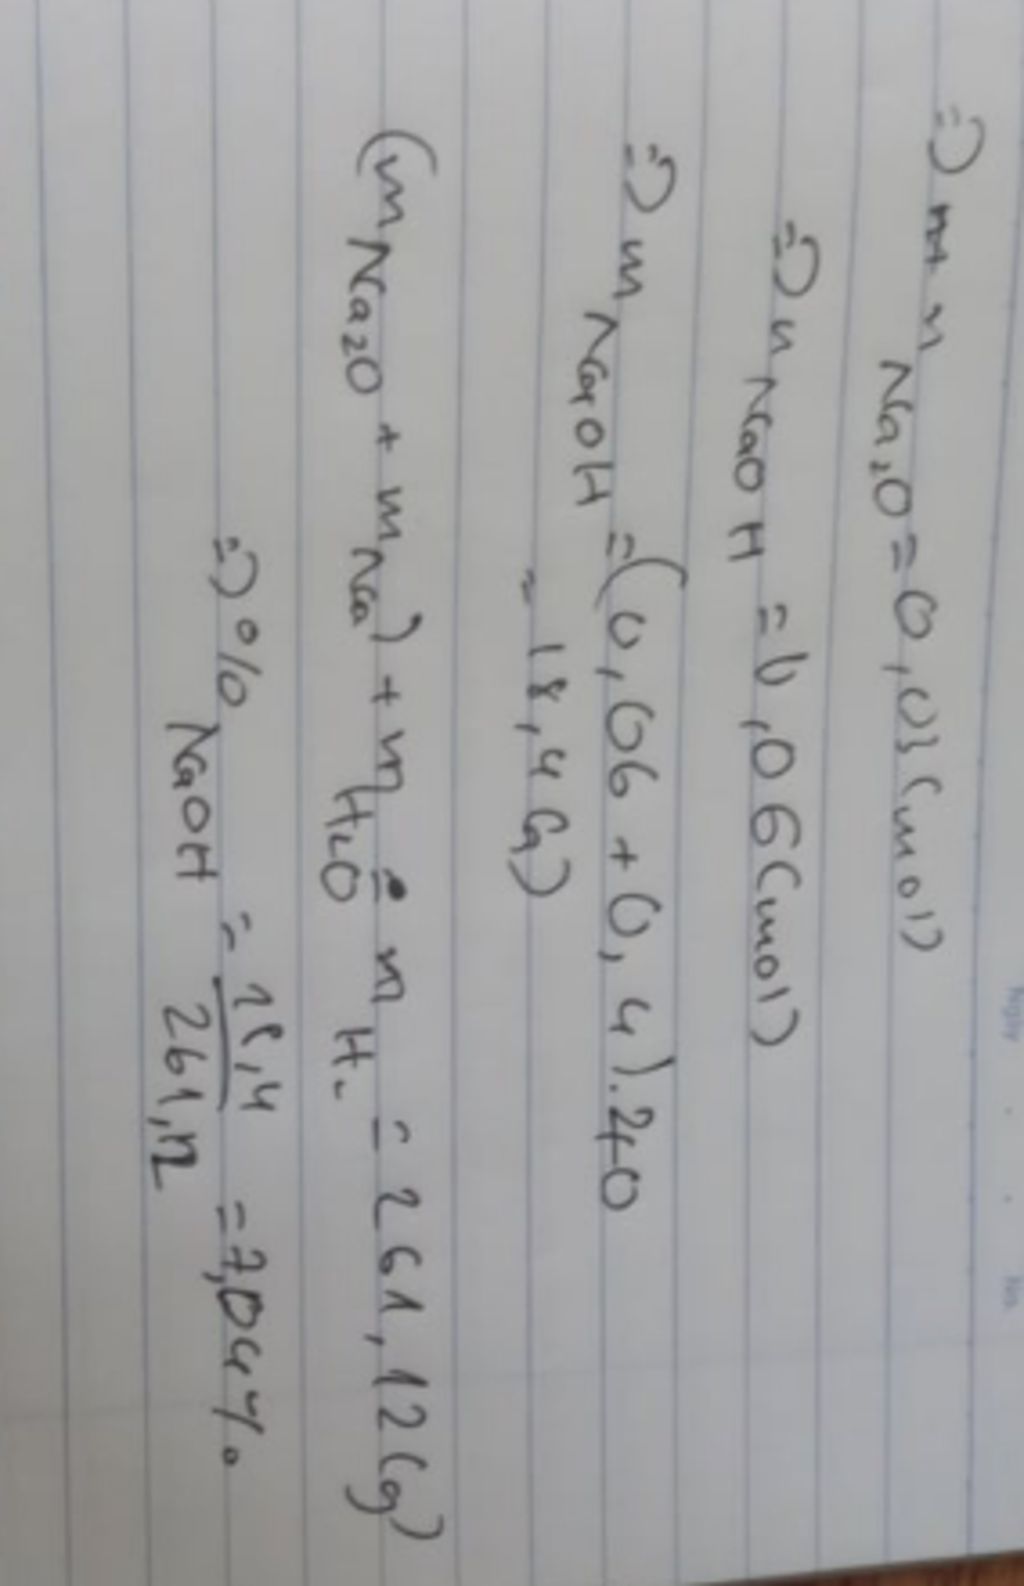 => n Na₂O = 0,03 (mol)
=> n NaOH = 0,06 (mol)
=> m NaOH = (0,06 + 0,4).40
= 18,4 (g)
(m Na₂O + m Na) + m H₂O = m H₂ = 261,12 (g)
=> % NaOH = 18,4 / 261,12 = 7,04%
Ngày . . No.